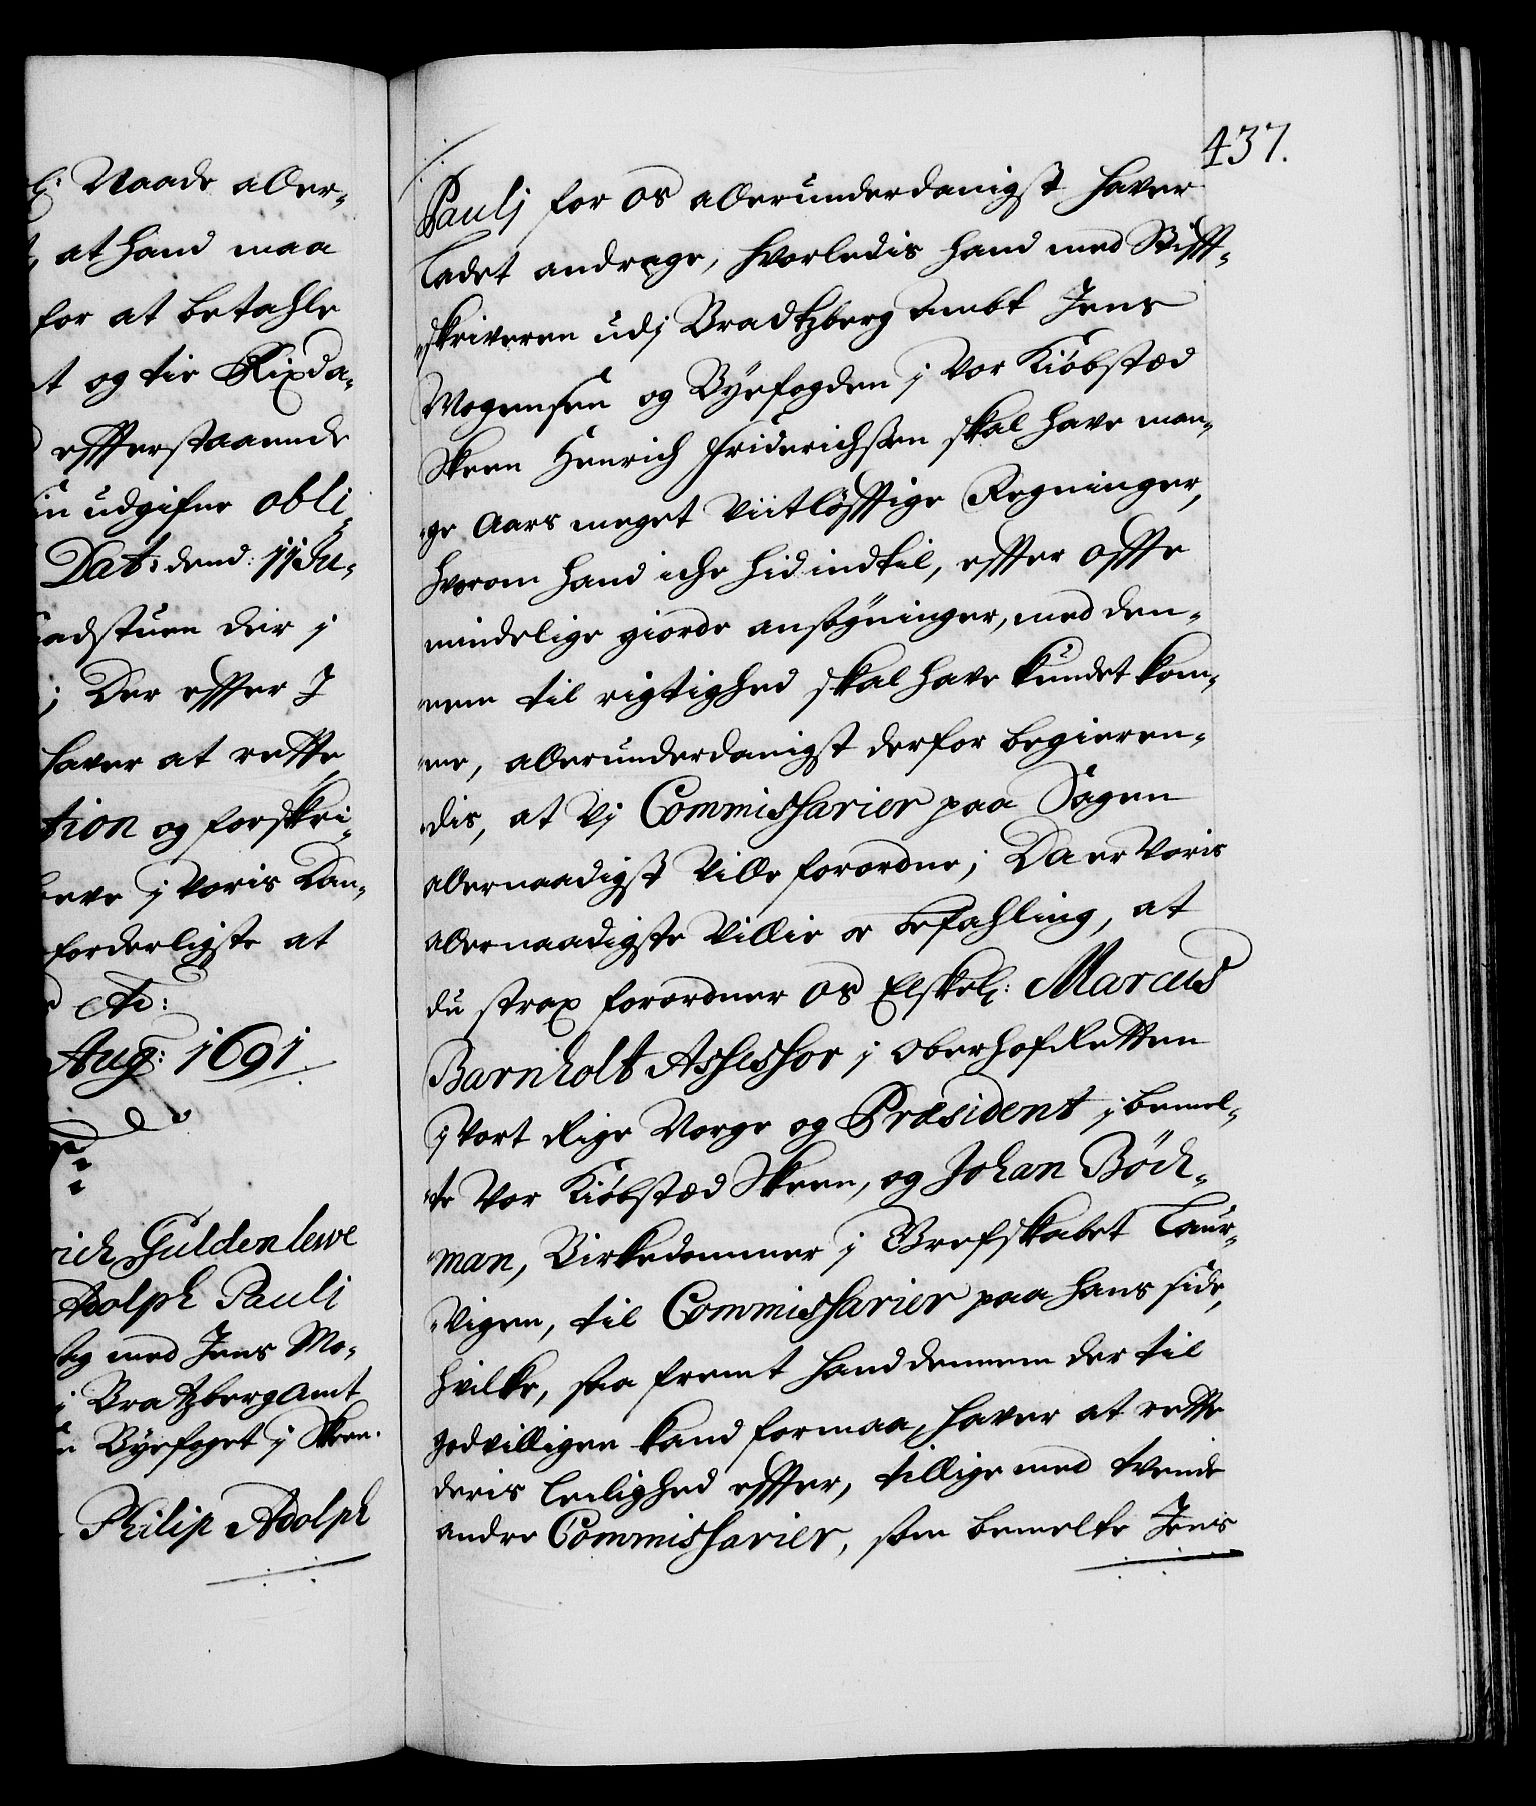 l: Naade aller-
t, at hand maa
for at betahle
t og tie Rixda-
effterstaaende
in udgifne obli-
Dat. dend: 11 Ju-
aadstuen der j
j Der effter J
haver at rette
tion og forskri-
beve j Voris Can-
forderligste at
etc:
Aug: 1691
rich Guldenlewe
Adolph Pauli
tig med Jens Mo-
j Bratzberg Amt
n Byefoget j Skeen.
Philip Adolph
437.
Paulj for os allerunderdanigst haver
ladet andrage, hvorledis hand med Stifft-
skriveren udj Bradtzberg Ambt Jens
Mogensen og Byefogden j vor Kiöbsted
Skeen Henrich Friderichssen skal have man-
ge Aars meget Viitlöfftige Regninger,
hvorom hand iche hid indtil, effter offte
mindelige giorde ansögninger, med den-
nem til rigtighed skal have kundet kom-
me, allerunderdanigst derfor begieren-
dis, at Vj Commissarier paa Sagen
allernaadigst Ville forordne; Da er Voris
allernaadigste Villie oc Befahling, at
du strax forordner os Elskel: Marcus
Barnholt Assessor j Oberhofretten
j Vort Rige Norge og Præsident j bemel-
te Vor Kiöbsted Skeen, og Johan Böch-
man, Birkedommer j Grefskabet Laur-
Vigen, til Commissarier paa hans side,
hvilke, saa fremt hand dennem der til
godvilligen kand formaa, haver at rette
deris leilighed effter, tillige med tvende
andre Commissarier, som bemelte Jens